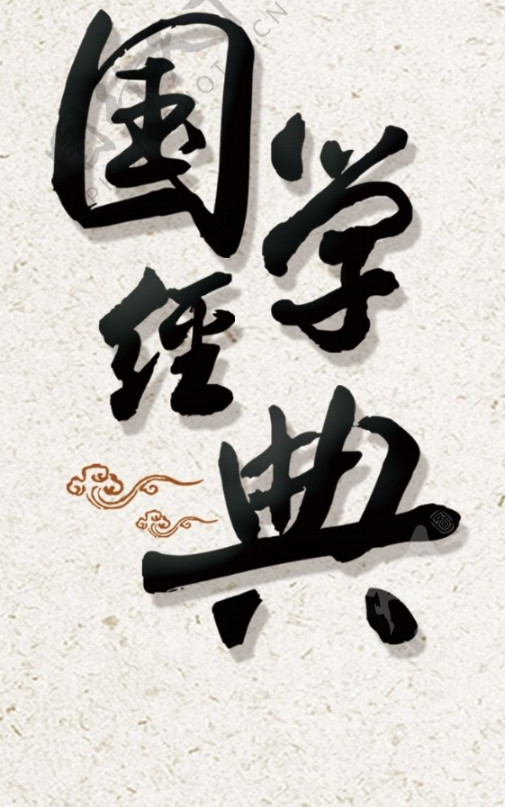 国学
经典